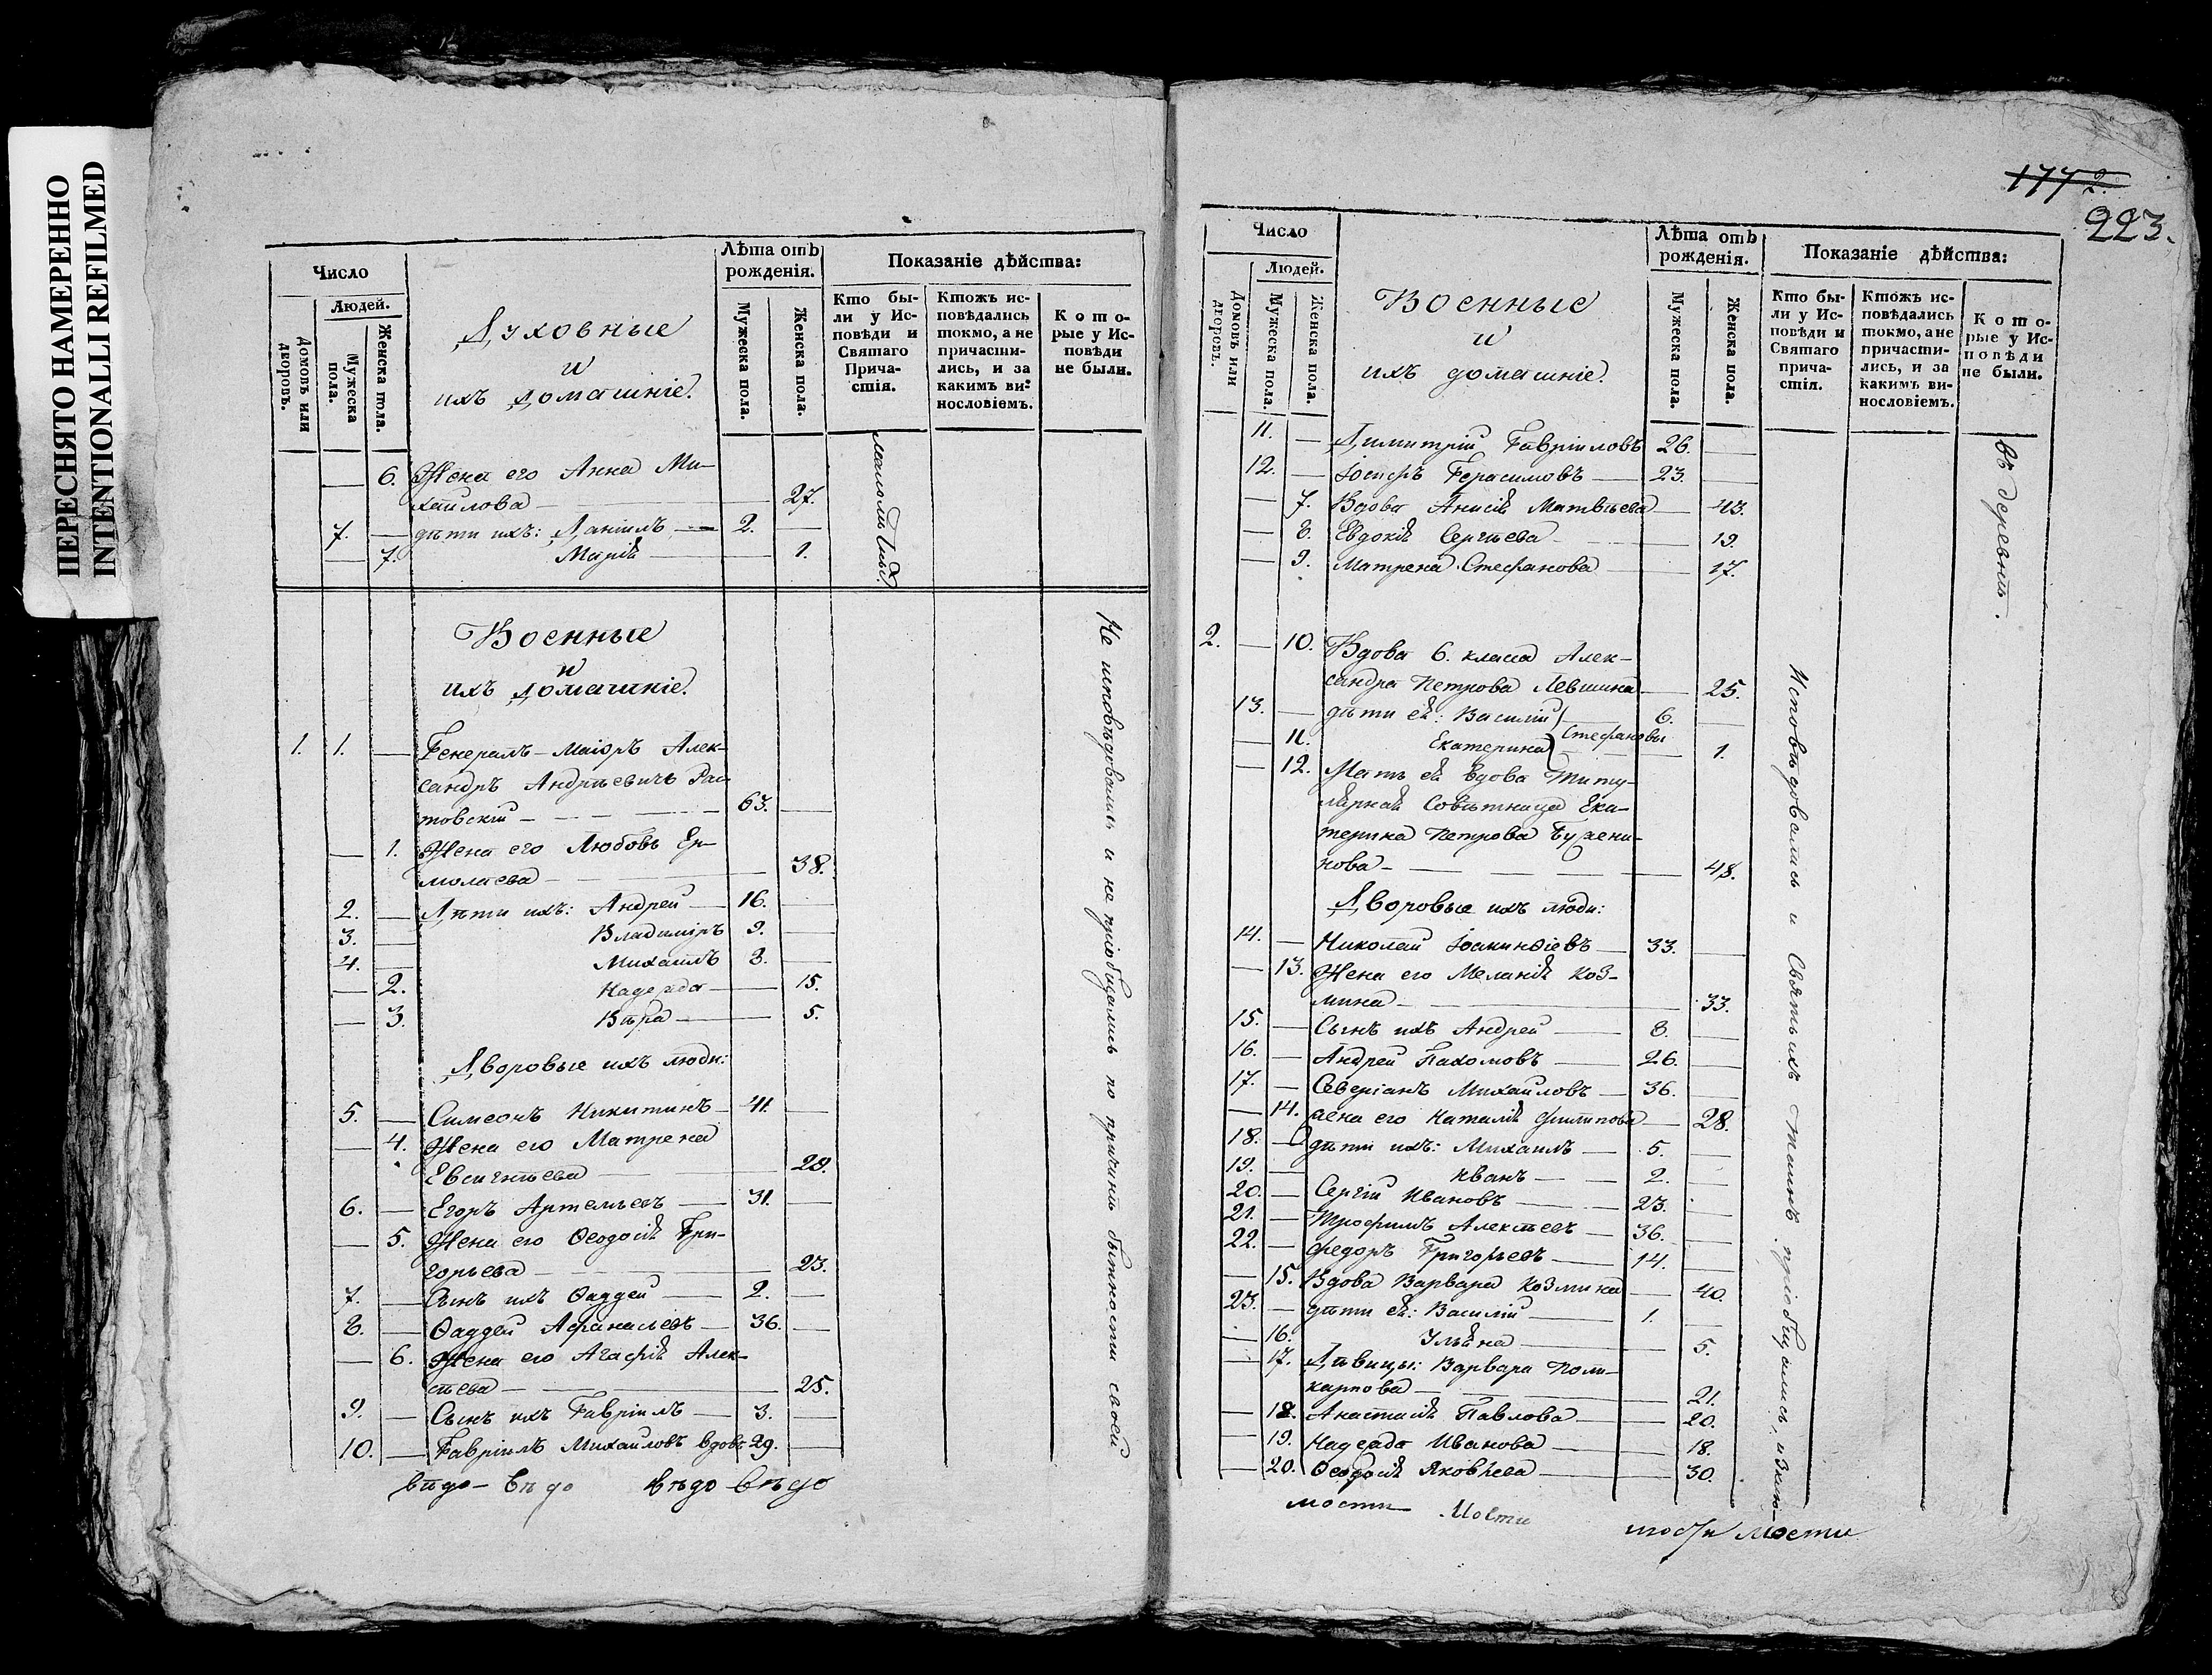 ПЕРЕСНЯТО НАМЕРЕННО
INTENTIONALLI REFILMED
Число
Людей.
Домовъ или дворовъ.
Мужеска пола.
Женска пола.
Духовные
и
ихъ домашніе.
Лѣта отъ рожденія.
Мужеска пола.
Женска пола.
Показаніе дѣйства:
Кто были у Исповѣди и Святаго Причастія.
Ктожъ исповѣдались токмо, а не причастились, и за какимъ винословіемъ.
Которые у Исповѣди не были.
— 6. Жена его Анна Ми-
хайлова — 27.
7. — дѣти ихъ: Даніилъ — 2. —
— 7. Марія — 1.
Военные
и
ихъ домашніе.
1. 1. — Генералъ-Маіоръ Алек-
сандръ Андрѣевичъ
товскій — 63. —
— 1. Жена его Любовь Ер-
молаева — 38.
2. — Дѣти ихъ: Андрей — 16. —
3. — Владиміръ 9. —
4. — Михаилъ 8. —
— 2. Надежда — 15.
— 3. Вѣра — 5.
Дворовые ихъ люди:
5. — Симеонъ Никитинъ — 41. —
— 4. Жена его Матрена
Евсигнѣева — 28.
6. — Егоръ Артемьевъ — 31. —
— 5. Жена его Ѳеодосія Гри-
горьева — 23.
7. — Сынъ ихъ Ѳаддей — 2. —
8. — Ѳаддей Афанасьевъ — 36. —
— 6. Жена его Агафія Алек-
сѣева — 25.
9. — Сынъ ихъ Гавріилъ — 3. —
10. — Гавріилъ Михайловъ вдовъ 29. —
Не исповѣдовались и не пріобщались по причинѣ бытности своей
вѣдо- вѣдо вѣдо вѣдо
1772.
223.
Число
Людей.
Домовъ или дворовъ.
Мужеска пола.
Женска пола.
Военные
и
ихъ домашніе.
Лѣта отъ рожденія.
Мужеска пола.
Женска пола.
Показаніе дѣйства:
Кто были у Исповѣди и Святаго причастія.
Ктожъ исповѣдались токмо, а не причастились, и за какимъ винословіемъ.
Которые у Исповѣди не были.
11. — Димитрій Гавриловъ 26. —
12. — Іосифъ Герасимовъ — 23. —
— 7. Вдова Анисія Матвѣева — 43.
— 8. Евдокія Сергѣева — 19.
— 9. Матрена Стефанова — 17.
въ деревнѣ.
2. — 10. Вдова 6. класса Алек-
сандра Петрова Левшина — 25.
13. — дѣти ея: Василій 6. —
Стефановы
— 11. Екатерина — 1.
— 12. Мать ея вдова Титу-
лярная Совѣтница Ека-
терина Петрова Бужени-
нова — 48.
Дворовые ихъ люди:
14. — Николай Іоакинѳіевъ — 33. —
— 13. Жена его Меланія Коз-
мина — 33.
15. — Сынъ ихъ Андрей — 8. —
16. — Андрей Пахомовъ — 26. —
17. — Северіанъ Михайловъ — 36. —
— 14. жена его Наталія Филипова — 28.
18. — дѣти ихъ: Михаилъ — 5. —
19. — Иванъ — 2. —
20. — Сергій Ивановъ — 23. —
21. — Трофимъ Алексѣевъ — 36. —
22. — Федоръ Григорьевъ — 14. —
— 15. Вдова Варвара Козмина — 40.
23. — дѣти ея: Василій — 1. —
— 16. Ульяна — 5.
— 17. Дѣвицы: Варвара Поли-
карпова — 21.
— 18. Анастасія Павлова — 20.
— 19. Надежда Иванова — 18.
— 20. Ѳеодосія Яковлева — 30.
Исповѣдовались и Святыхъ Таинъ пріобщались, изклю-
мости мости мости мости